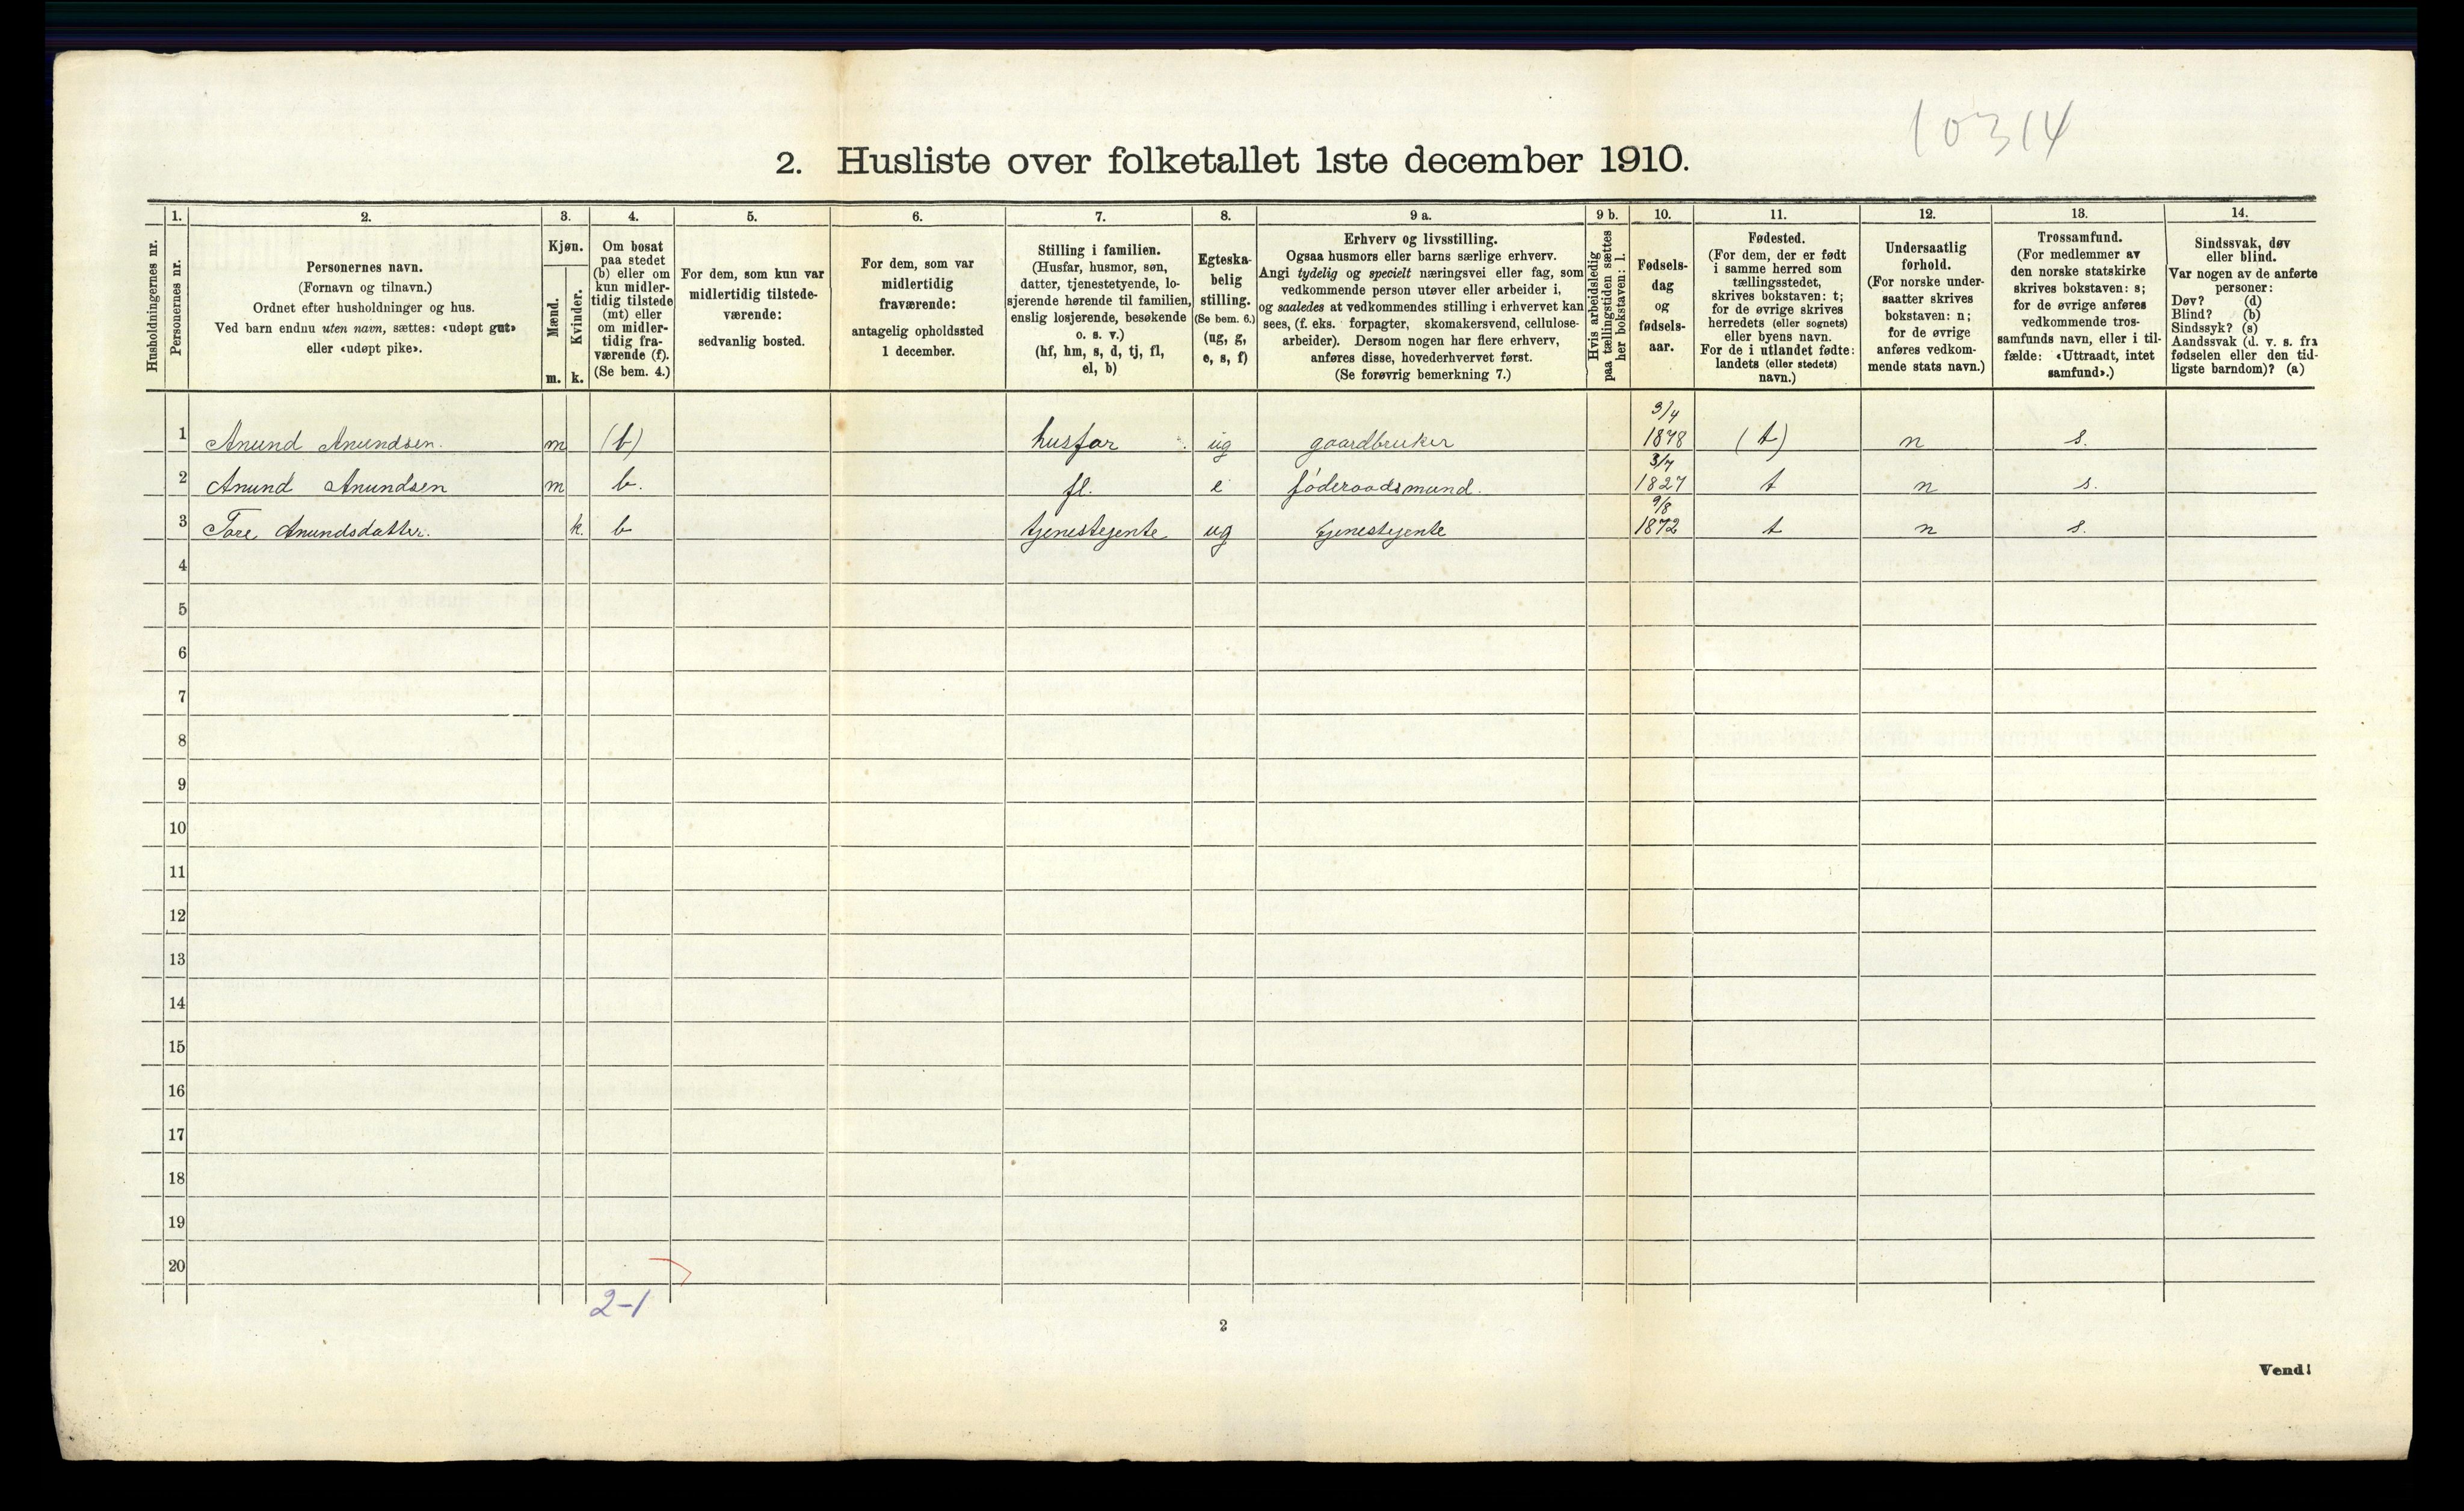 10314
2. Husliste over folketallet 1ste december 1910.
Husholdningernes nr.
1.
Personernes nr.
2.
Personernes navn.
(Fornavn og tilnavn.)
Ordnet efter husholdninger og hus.
Ved barn endnu uten navn, sættes: «udøpt gut»
eller «udøpt pike».
3.
Kjøn.
Mænd.
Kvinder.
m. k.
4.
Om bosat
paa stedet
(b) eller om
kun midler-
tidig tilstede
(mt) eller
om midler-
tidig fra-
værende (f).
(Se bem. 4.)
5.
For dem, som kun var
midlertidig tilstede-
værende:
sedvanlig bosted.
6.
For dem, som var
midlertidig
fraværende:
antagelig opholdssted
1 december.
7.
Stilling i familien.
(Husfar, husmor, søn,
datter, tjenestetyende, lo-
sjerende hørende til familien,
enslig losjerende, besøkende
o. s. v.)
(hf, hm, s, d, tj, fl,
el, b)
8.
Egteska-
belig
stilling.
(Se bem. 6.)
(ug, g,
e, s, f)
9 a.
Erhverv og livsstilling.
Ogsaa husmors eller barns særlige erhverv.
Angi tydelig og specielt næringsvei eller fag, som
vedkommende person utøver eller arbeider i,
og saaledes at vedkommendes stilling i erhvervet kan
sees, (f. eks. forpagter, skomakersvend, cellulose-
arbeider). Dersom nogen har flere erhverv,
anføres disse, hovederhvervet først.
(Se forøvrig bemerkning 7.)
9 b.
Hvis arbeidsledig
paa tællingstiden sættes
her bokstaven: l.
10.
Fødsels-
dag
og
fødsels-
aar.
11.
Fødested.
(For dem, der er født
i samme herred som
tællingsstedet,
skrives bokstaven: t;
for de øvrige skrives
herredets (eller sognets)
eller byens navn.
For de i utlandet fødte:
landets (eller stedets)
navn.)
12.
Undersaatlig
forhold.
(For norske under-
saatter skrives
bokstaven: n;
for de øvrige
anføres vedkom-
mende stats navn.)
13.
Trossamfund.
(For medlemmer av
den norske statskirke
skrives bokstaven: s;
for de øvrige anføres
vedkommende tros-
samfunds navn, eller i til-
fælde: «Uttraadt, intet
samfund».)
14.
Sindssvak, døv
eller blind.
Var nogen av de anførte
personer:
Døv? (d)
Blind? (b)
Sindssyk? (s)
Aandssvak (d. v. s. fra
fødselen eller den tid-
ligste barndom)? (a)
1 Anund Anundsen. m (b) husfar ug gaardbruker 9/4 1878 (t) n s.
2 Anund Anundsen m b. fl. e føderaadsmand. 3/7 1827 t n s.
3 Tore Anundsdatter. k. b tjenestejente ug tjenestejente 9/8 1872 t n s.
4
5
6
7
8
9
10
11
12
13
14
15
16
17
18
19
20
2-1
2
Vend!